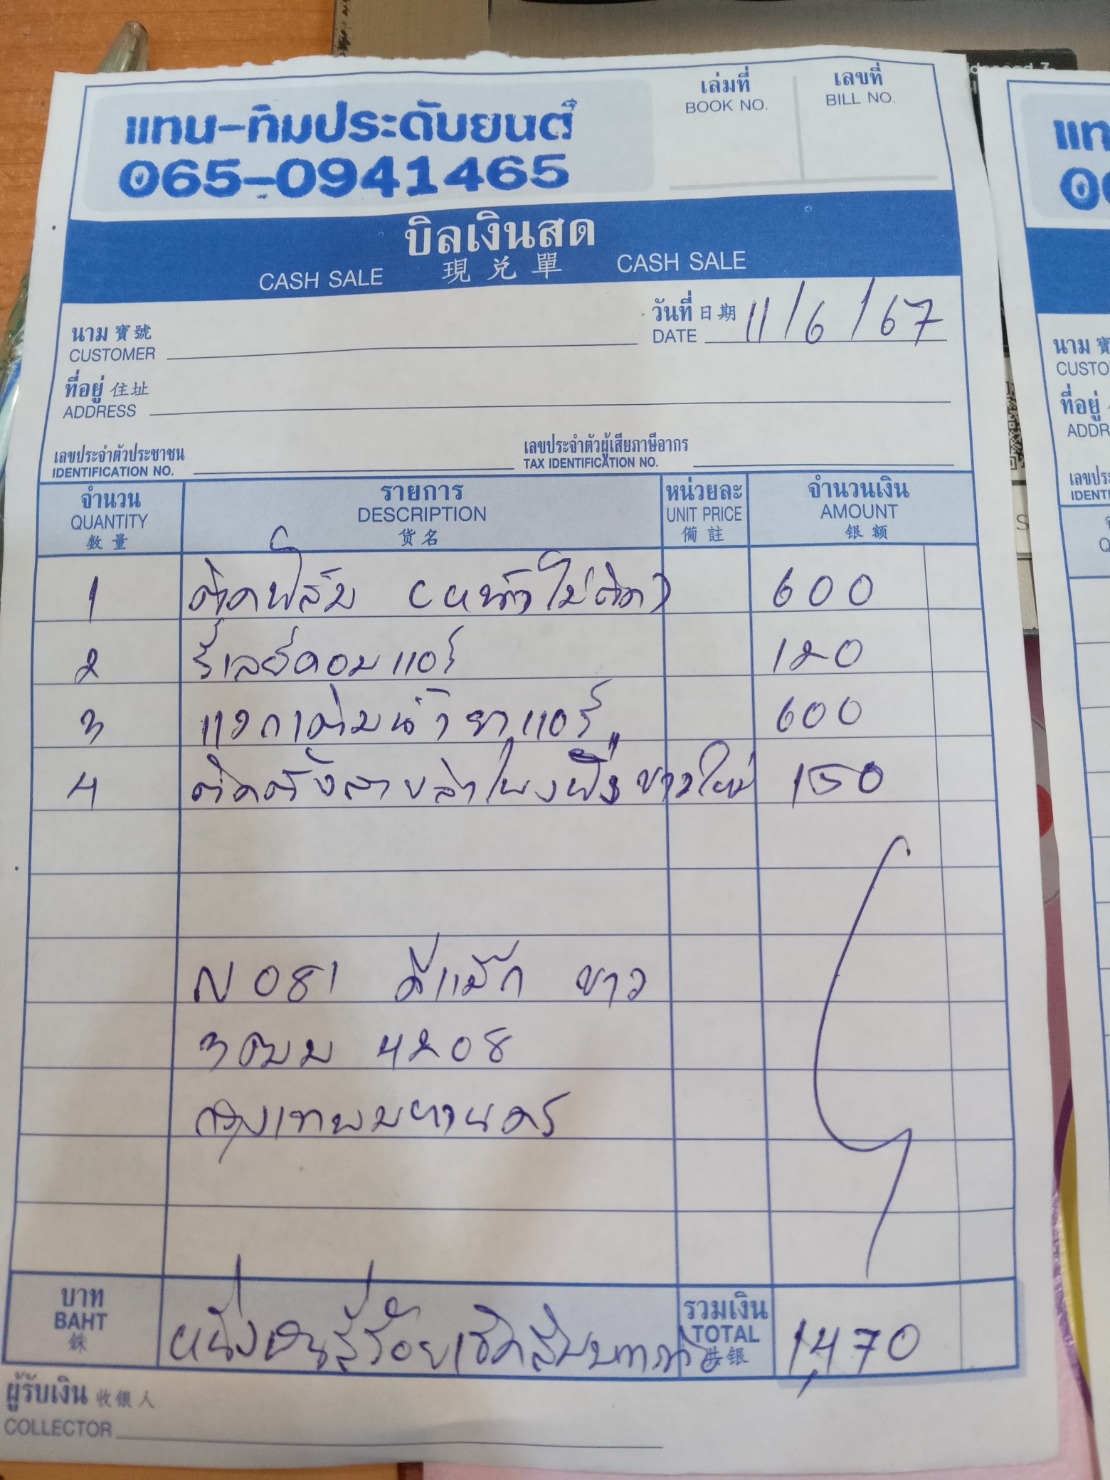 แทน-ทิมประดับยนต์
065-0941465
เล่มที่
BOOK NO.
เลขที่
BILL NO.
บิลเงินสด
CASH SALE 現兑單 CASH SALE
วันที่ 日期 11/6/67
DATE
นาม 寶號
CUSTOMER
ที่อยู่ 住址
ADDRESS
เลขประจำตัวประชาชน
IDENTIFICATION NO.
เลขประจำตัวผู้เสียภาษีอากร
TAX IDENTIFICATION NO.
จำนวน รายการ หน่วยละ จำนวนเงิน
QUANTITY DESCRIPTION UNIT PRICE AMOUNT
数量 货名 備註 银额
1 ติดฟิล์ม (หน้าไม่ติด) 600
2 รีเลย์คอมแอร์ 120
3 แวคเติมน้ำยาแอร์ 600
4 ติดตั้งสายลำโพงฝั่งขวาใหม่ 150
N 081 ดีแม็ก ขาว
3ฒม 4208
กรุงเทพมหานคร
บาท
BAHT
銖
หนึ่งพันสี่ร้อยเจ็ดสิบบาท
รวมเงิน
TOTAL 1,470
银
ผู้รับเงิน 收银人
COLLECTOR
แท
นาม
CUSTO
ที่อยู่
ADDR
IDENTI